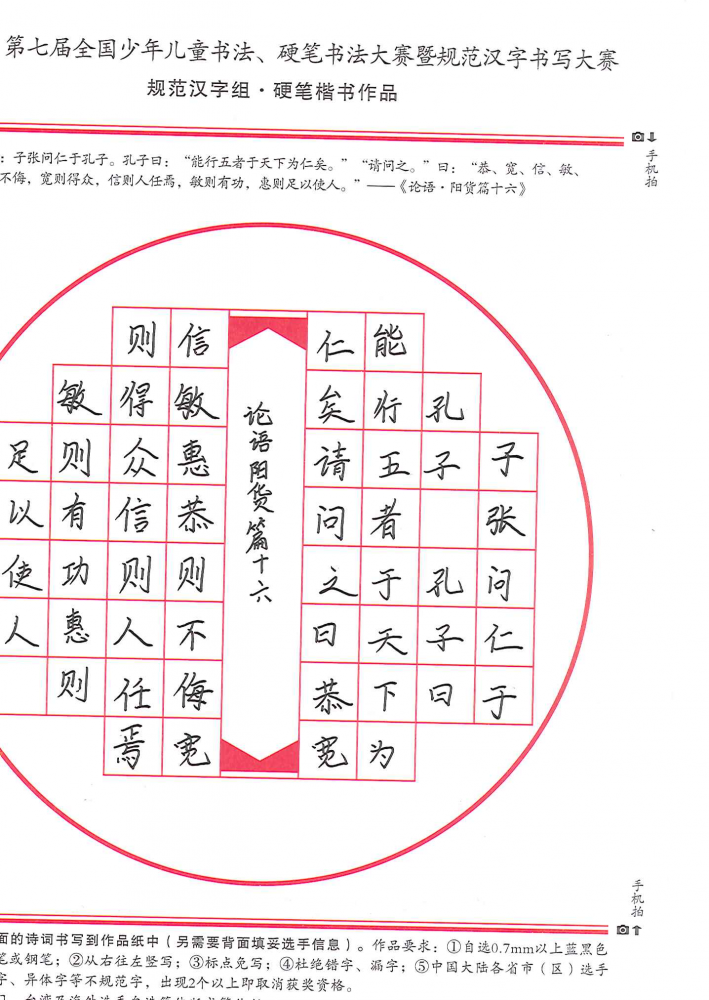 第七届全国少年儿童书法、硬笔书法大赛暨规范汉字书写大赛
规范汉字组·硬笔楷书作品
手机拍
：子张问仁于孔子。孔子曰：“能行五者于天下为仁矣。”“请问之。”曰：“恭、宽、信、敏、
不侮，宽则得众，信则人任焉，敏则有功，惠则足以使人。”——《论语·阳货篇十六》
子张问仁于
孔子孔子曰
能行五者于天下为
仁矣请问之曰恭宽
论语阳货篇十六
信敏惠恭则不侮宽
则得众信则人任焉
敏则有功惠则
足以使人
手机拍
面的诗词书写到作品纸中（另需要背面填妥选手信息）。作品要求：①自选0.7mm以上蓝黑色
笔或钢笔；②从右往左竖写；③标点免写；④杜绝错字、漏字；⑤中国大陆各省市（区）选手
字、异体字等不规范字，出现2个以上即取消获奖资格。